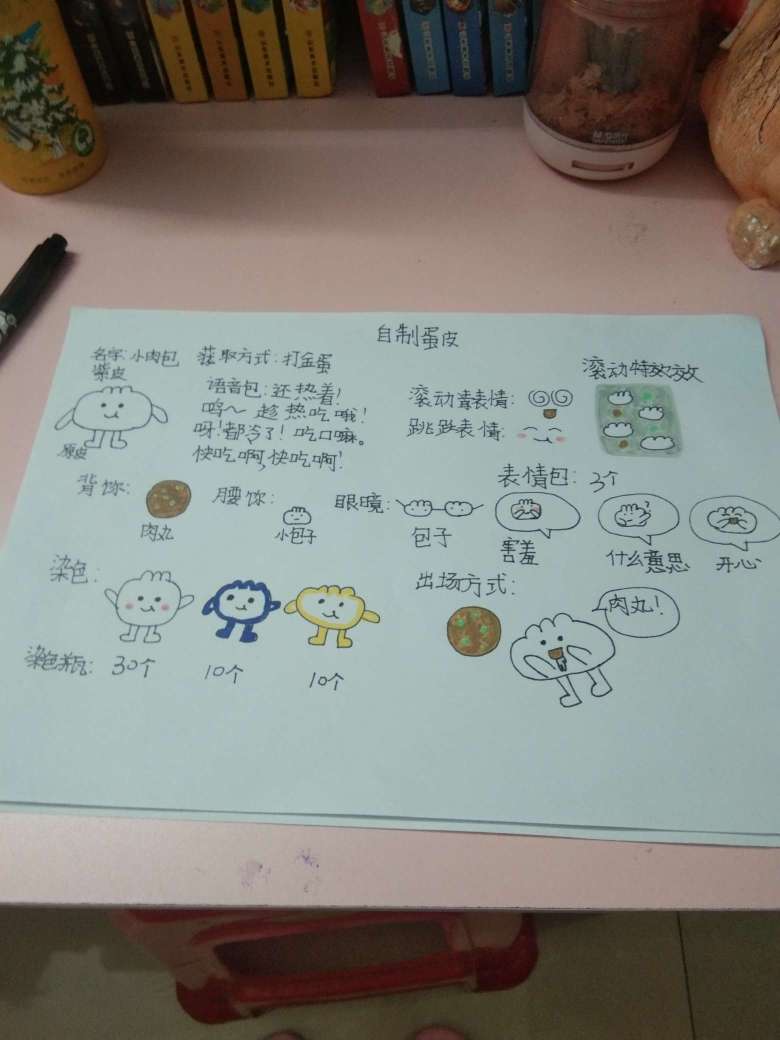 自制蛋皮
名字:小肉包 获取方式:打金蛋
紫皮
原皮
语音包:还热着!
呜~趁热吃哦!
呀!都冷了!吃口嘛。
快吃啊,快吃啊!
滚动表情:
跳跃表情:
滚动特效
背饰:
肉丸
腰饰:
小包子
眼镜:
包子
表情包:3个
害羞
什么意思
开心
染色:
染色瓶:30个 10个 10个
出场方式:
肉丸!
M&G